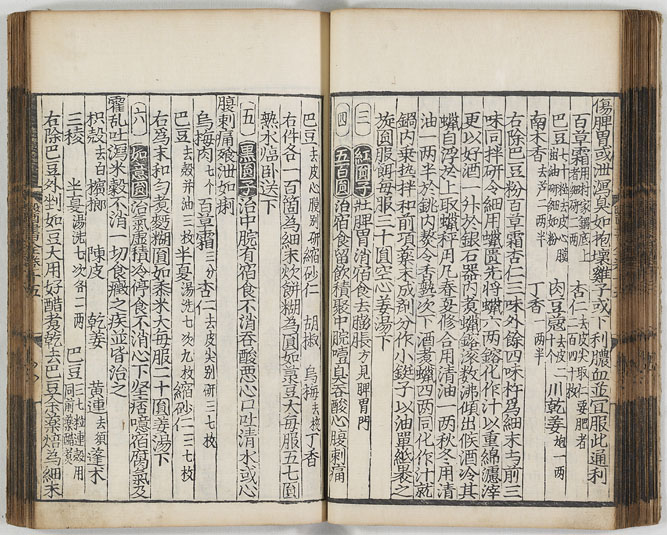 傷脾胃或泄瀉臭如抱壞雞子或下利膿血並宜服此通利
百草霜 杏仁
巴豆 肉豆蔻 川乾姜
南木香 丁香一兩半
右除巴豆粉百草霜杏仁三味外餘四味杵爲細末与前三
味同拌研令細用蠟匱先將蠟六兩鎔化作汁以重綿濾滓
更以好酒一升於銀石器內煮蠟鎔滚數沸傾出候酒冷其
蠟自浮於上取蠟秤用凡春夏修合用清油一兩秋冬用清
油一兩半於銚內熬令香熟次下酒煮蠟四兩同化作汁就
鍋內乗热拌和前項藥末成劑分作小錠子以油單紙裹之
旋圓服餌每服三十圓空心姜湯下
三 紅圓子 壯脾胃消宿食去膨脹方見脾胃門
四 五百圓 治宿食留飲積聚中脘噎臭吞酸心腹刺痛
巴豆去皮心膜別研 縮砂仁 胡椒 烏梅去核 丁香
右件各一百箇爲細末炊餅糊為圓如菉豆大每服五七圓
熟水臨臥送下
五 黑圓子 治中脘有宿食不消吞酸惡心口吐清水或心
腹刺痛飱泄如痢
烏梅肉七个 百草霜三分 杏仁去皮尖別研三七枚
巴豆去殼并油三枚 半夏湯洗七次九枚 縮砂仁三七枚
右爲末和匀煮麪糊圓如黍米大每服二十圓姜湯下
六 如意圓 治氣虛積冷停食不消心下坚痞噫宿腐氣及
霍乱吐瀉米穀不消一切食癥之疾並皆治之
枳殼去白 檳榔 陳皮 乾姜 黃連去須 蓬朮
三稜 半夏湯洗七次各二兩 巴豆三七粒連殼用
右除巴豆外剉如豆大用好醋煮乾上巴豆余藥焙為細末